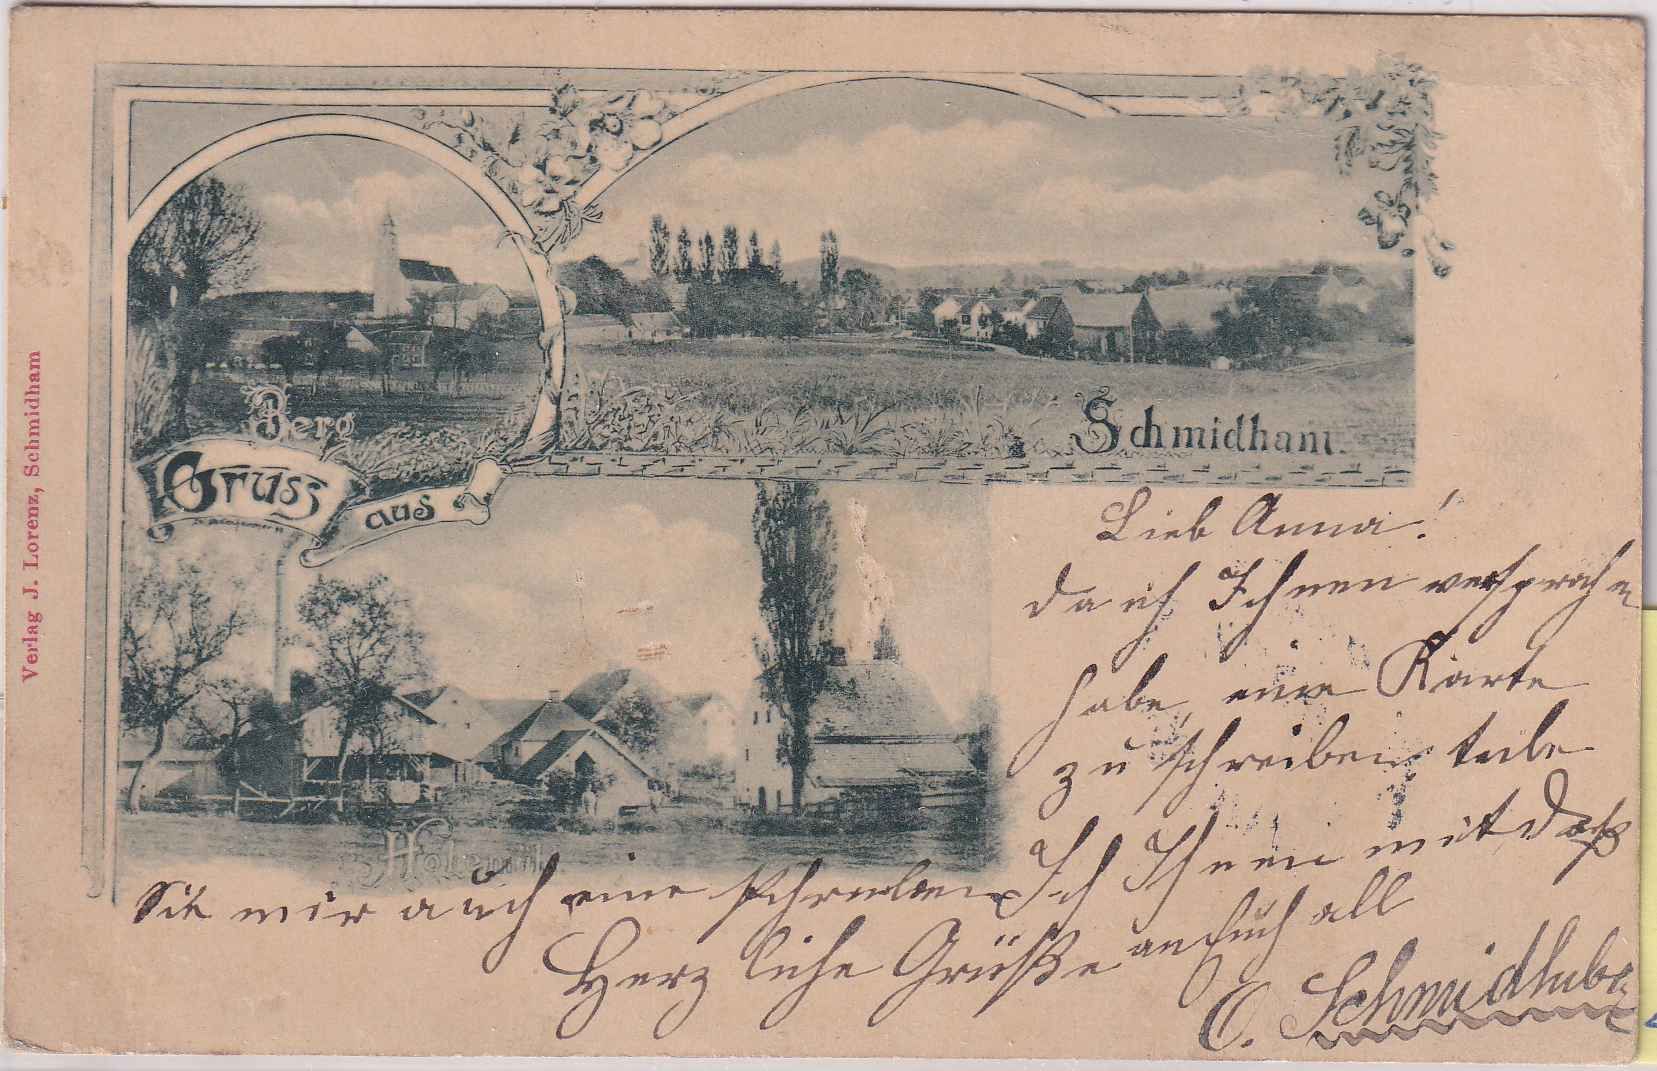 Verlag J. Lorenz, Schmidham
Berg
Gruss
aus
Schmidham.
Lieb Anna!
da ich Ihnen versprochen
habe, eine Karte
zu schreiben teile
Ich Ihnen mit daß
Sie mir auch eine schreiben
Herzliche Grüße an Euch all
O. Schmidhuber